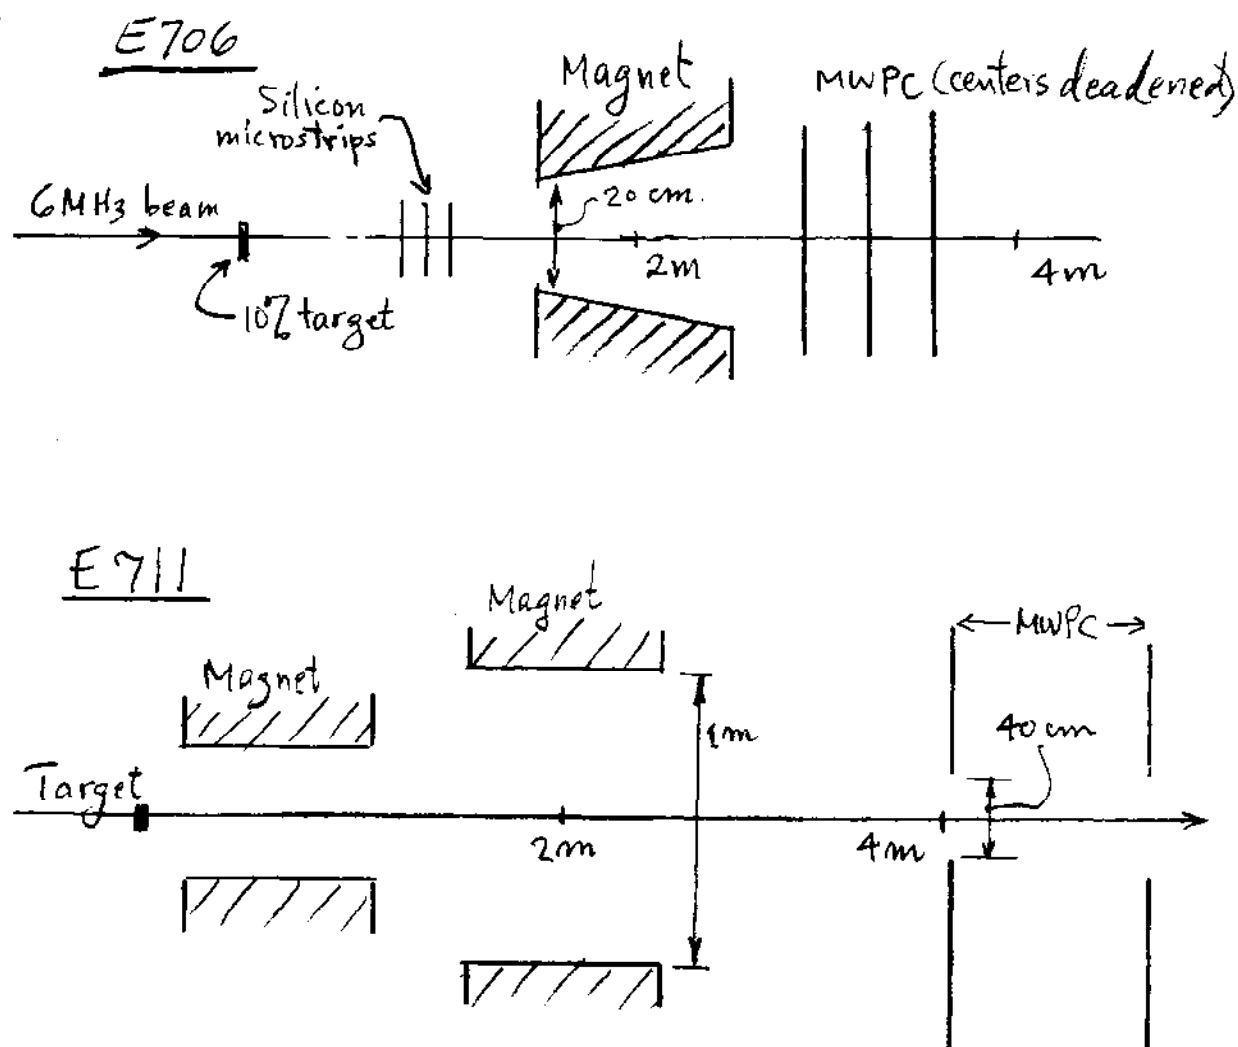 E706
Silicon
microstrips
Magnet
MWPC (centers deadened)
6MHz beam
20 cm.
2m
4m
10% target
E711
Magnet
Magnet
MWPC
1m
40 cm
Target
2m
4m